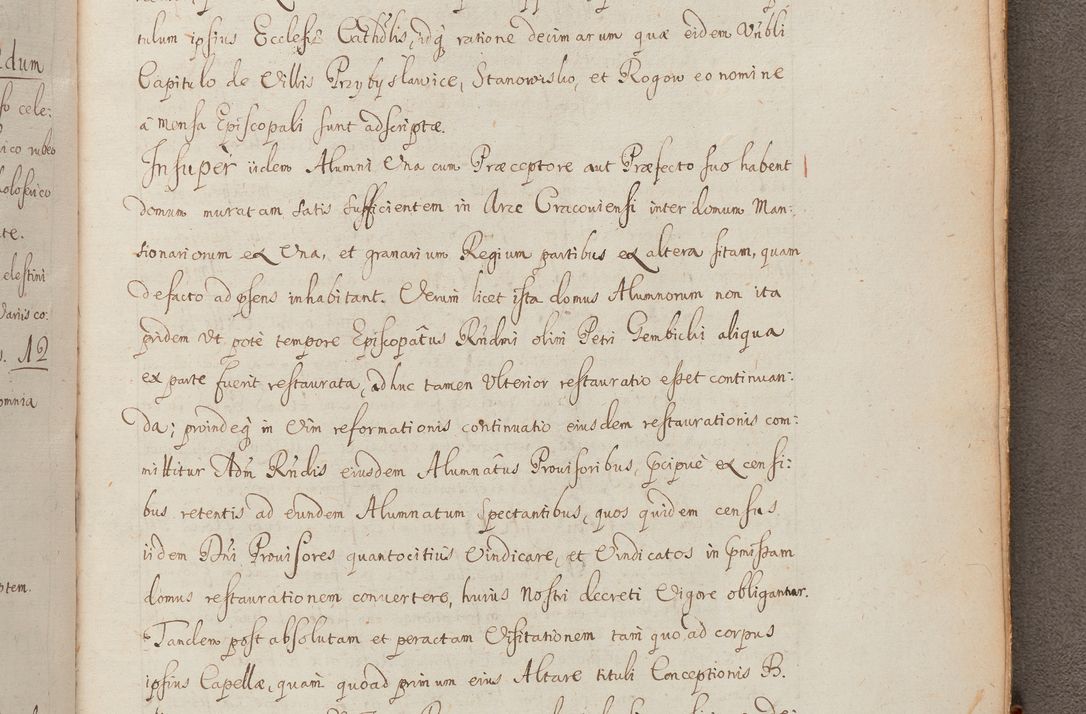 dum
so cele:
ico rubeo
oloserico
te.
elestini
Varÿs co:
. 12
omnia
ptem.
tulum ipsius Ecclesiæ Cathdlis, idq́ ratione decimarum quæ eidem Vnbli
Capitulo de Villis Przybÿslawice, Stanowisko, et Rogow eo nomine
a Mensa Episcopali sunt adscriptæ.
Insuper iidem Alumni Vna cum Præceptore aut Præfecto suo habent
domum muratam satis sufficientem in Arce Cracouiensi inter domum Man:
sionariorum ex Vna, et granarium Regium partibus ex altera sitam, quam
defacto ad psens inhabitant. Verum licet ista domus Alumnorum non ita
pridem Vt pote tempore Episcopatus Rndmi olim Petri Gembicki aliqua
ex parte fuerit restaurata, adhuc tamen Vlterior restauratio esset continuan:
da; proindeq́ in Vim reformationis continuatio eiusdem restaurationis com:
mittitur Adm Rndis eiusdem Alumnatus Prouisoribus, pcipue ex censi:
bus retentis ad eundem Alumnatum spectantibus, quos quidem census
iidem Dni Prouisores quantocitius Vindicare, et Vindicatos in pmissam
domus restaurationem conuertere, huius Nostri decreti Vigore obligantur.
Tandem post absolutam et peractam Visitationem tam quo ad corpus
ipsius Capellæ, quam quoad primum eius Altare tituli Conceptionis B.